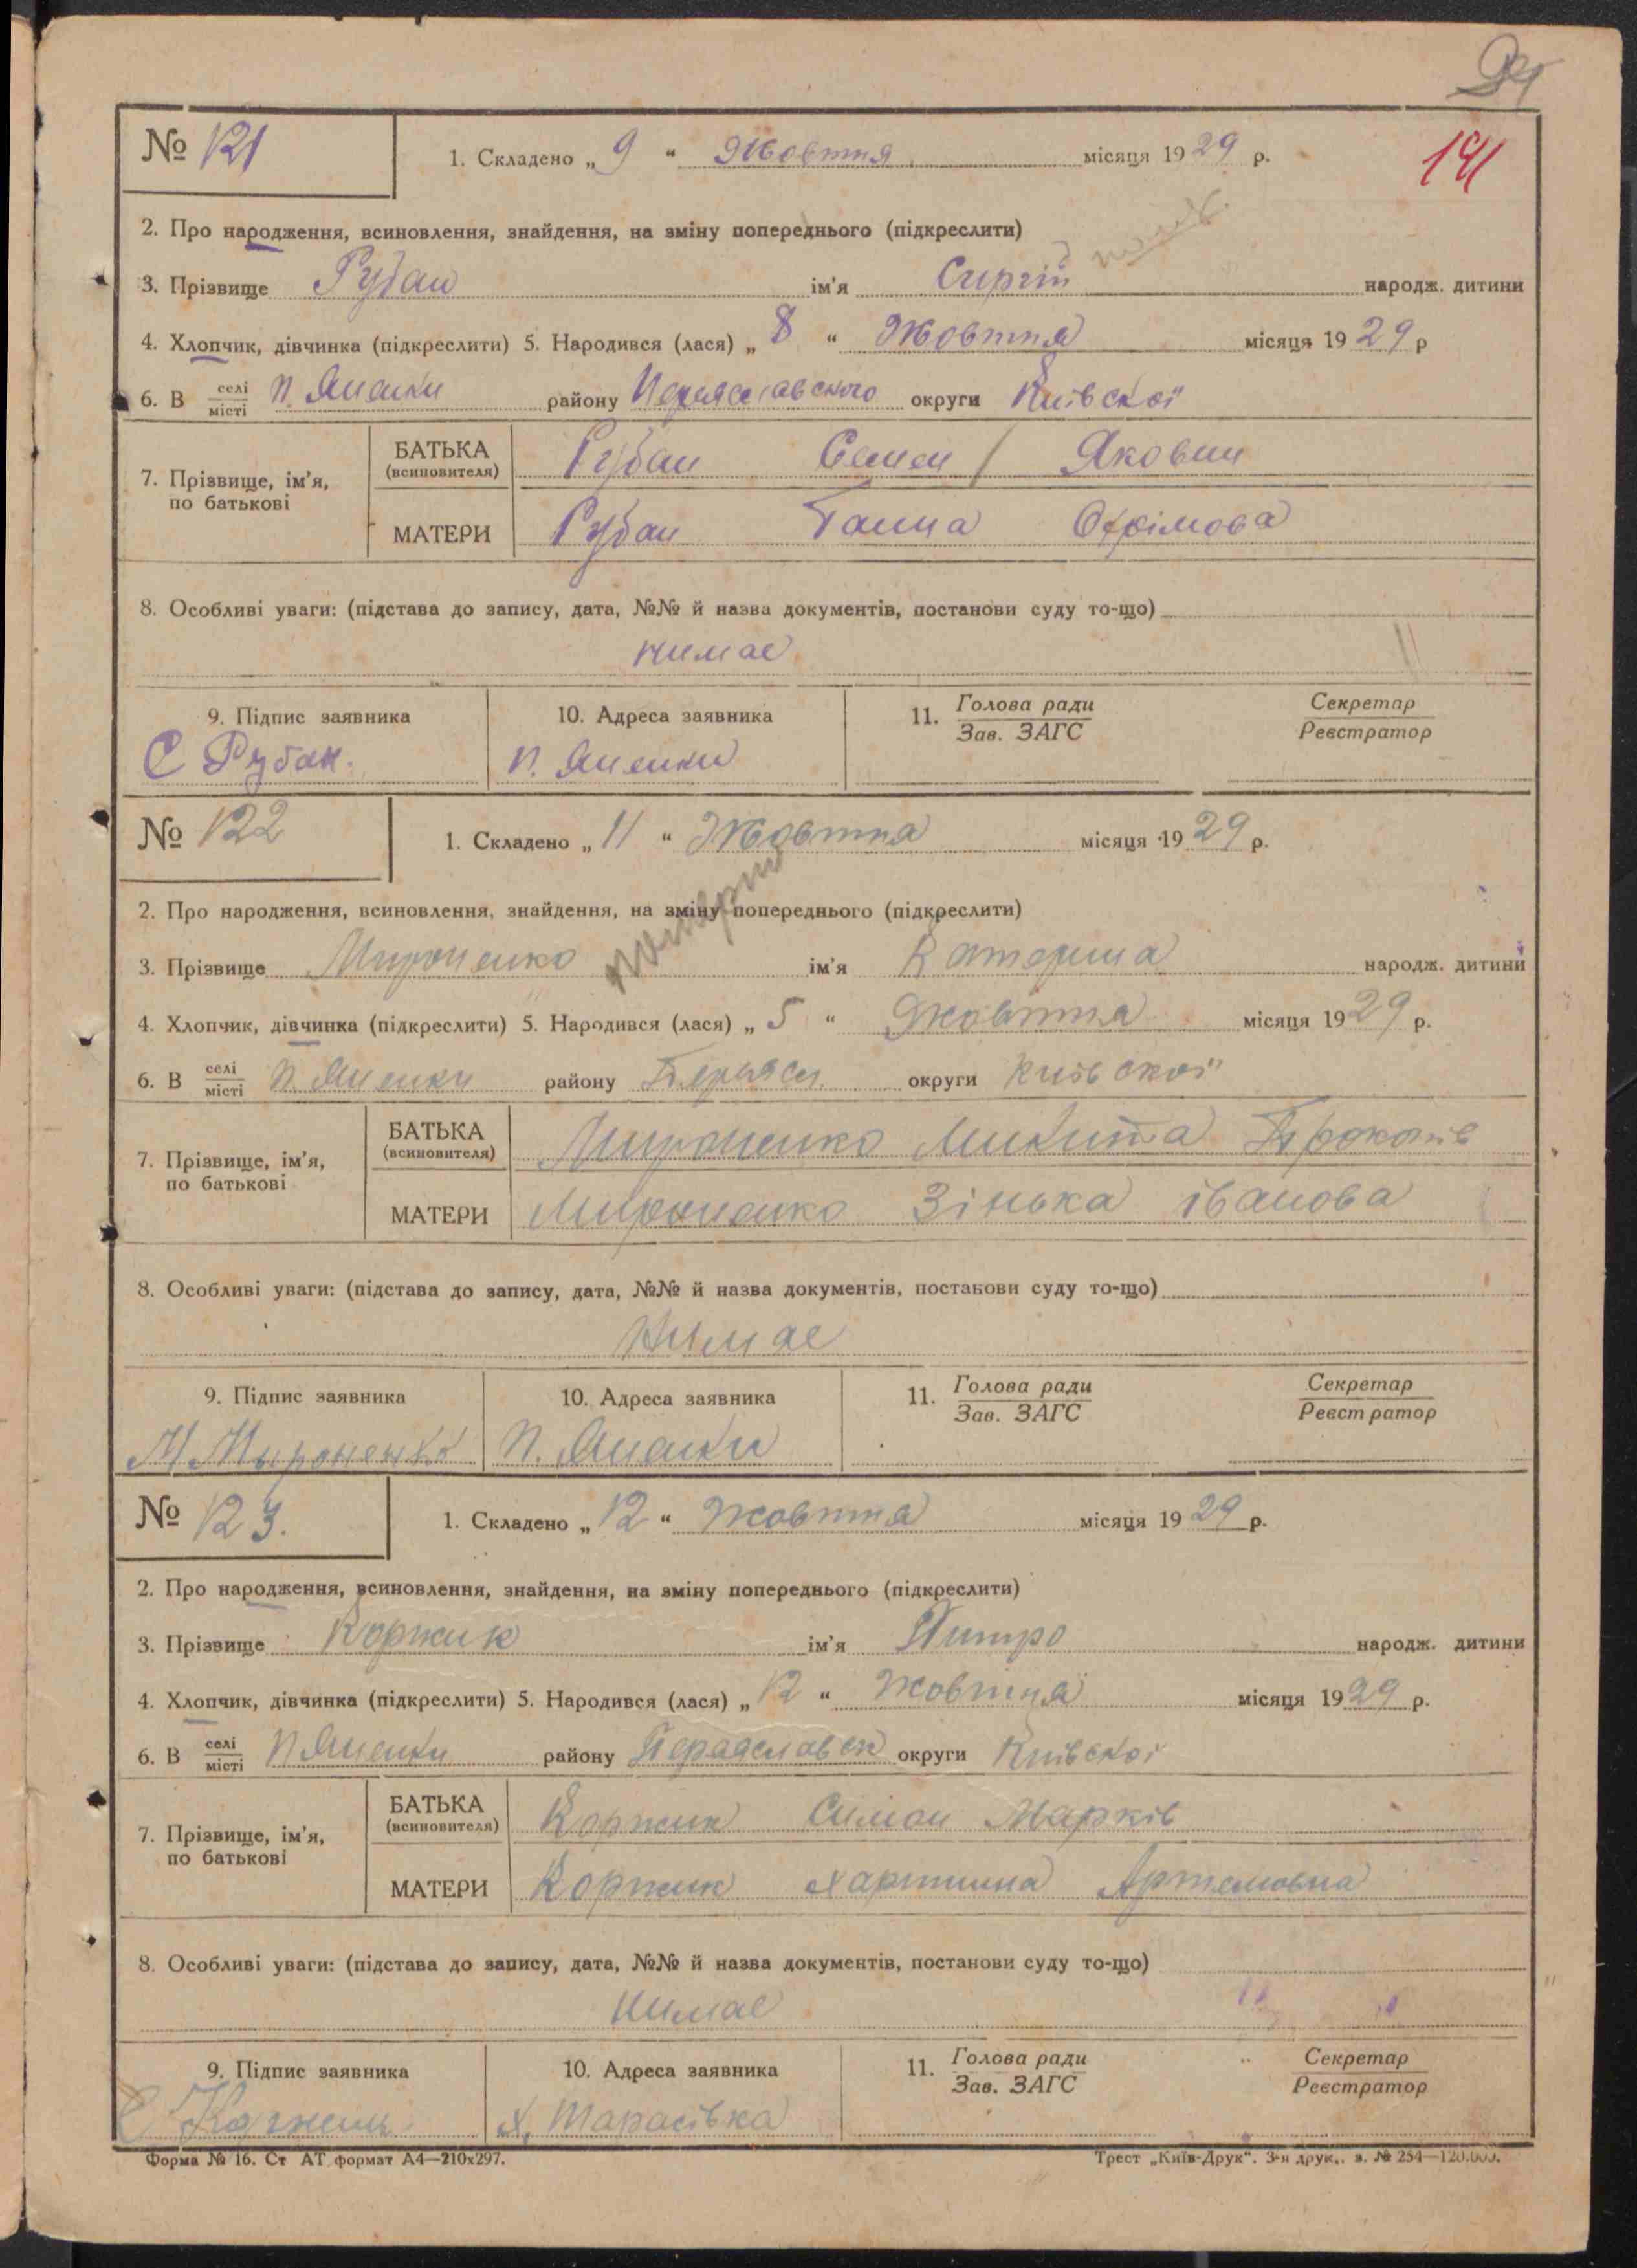 191
№ 121
1. Складено „ 9 “ Жовтня місяця 1929 р.
2. Про народження, всиновлення, знайдення, на зміну попереднього (підкреслити)
3. Прізвище Рубан ім'я Сиргій народж. дитини
4. Хлопчик, дівчинка (підкреслити) 5. Народився (лася) „ 8 “ Жовтня місяця 1929 р
6. В селі/місті п. Яненки району Переяславського округи Київської
7. Прізвище, ім'я, по батькові
БАТЬКА (всиновителя) Рубан Семен Яковин
МАТЕРИ Рубан Ганна Охрімова
8. Особливі уваги: (підстава до запису, дата, №№ й назва документів, постанови суду то-що)
нимає
9. Підпис заявника 10. Адреса заявника 11. Голова ради/Зав. ЗАГС Секретар/Реєстратор
С Рубан. п. Яненки
№ 122
1. Складено „ 11 “ Жовтня місяця 1929 р.
2. Про народження, всиновлення, знайдення, на зміну попереднього (підкреслити)
3. Прізвище Мироненко ім'я Катерина народж. дитини
4. Хлопчик, дівчинка (підкреслити) 5. Народився (лася) „ 5 “ Жовтня місяця 1929 р.
6. В селі/місті п. Яненки району Переясл. округи Київської
7. Прізвище, ім'я, по батькові
БАТЬКА (всиновителя) Мироненко Микита Прокопів
МАТЕРИ Мироненко Зінька Іванова
8. Особливі уваги: (підстава до запису, дата, №№ й назва документів, постанови суду то-що)
нимає
9. Підпис заявника 10. Адреса заявника 11. Голова ради/Зав. ЗАГС Секретар/Реєстратор
М. Мыроненко п. Яненки
№ 123.
1. Складено „ 12 “ Жовтня місяця 1929 р.
2. Про народження, всиновлення, знайдення, на зміну попереднього (підкреслити)
3. Прізвище Коржик ім'я Питро народж. дитини
4. Хлопчик, дівчинка (підкреслити) 5. Народився (лася) „ 12 “ Жовтня місяця 1929 р.
6. В селі/місті п Яненки району Переяславськ округи Київської
7. Прізвище, ім'я, по батькові
БАТЬКА (всиновителя) Коржик Симон Марків
МАТЕРИ Коржик Хартина Артемовна
8. Особливі уваги: (підстава до запису, дата, №№ й назва документів, постанови суду то-що)
нимає
9. Підпис заявника 10. Адреса заявника 11. Голова ради/Зав. ЗАГС Секретар/Реєстратор
х. Тарасівка
Форма № 16. Ст АТ формат А4—210х297. Трест „Київ-Друк“. 3-я друк., з. № 254—120.000.